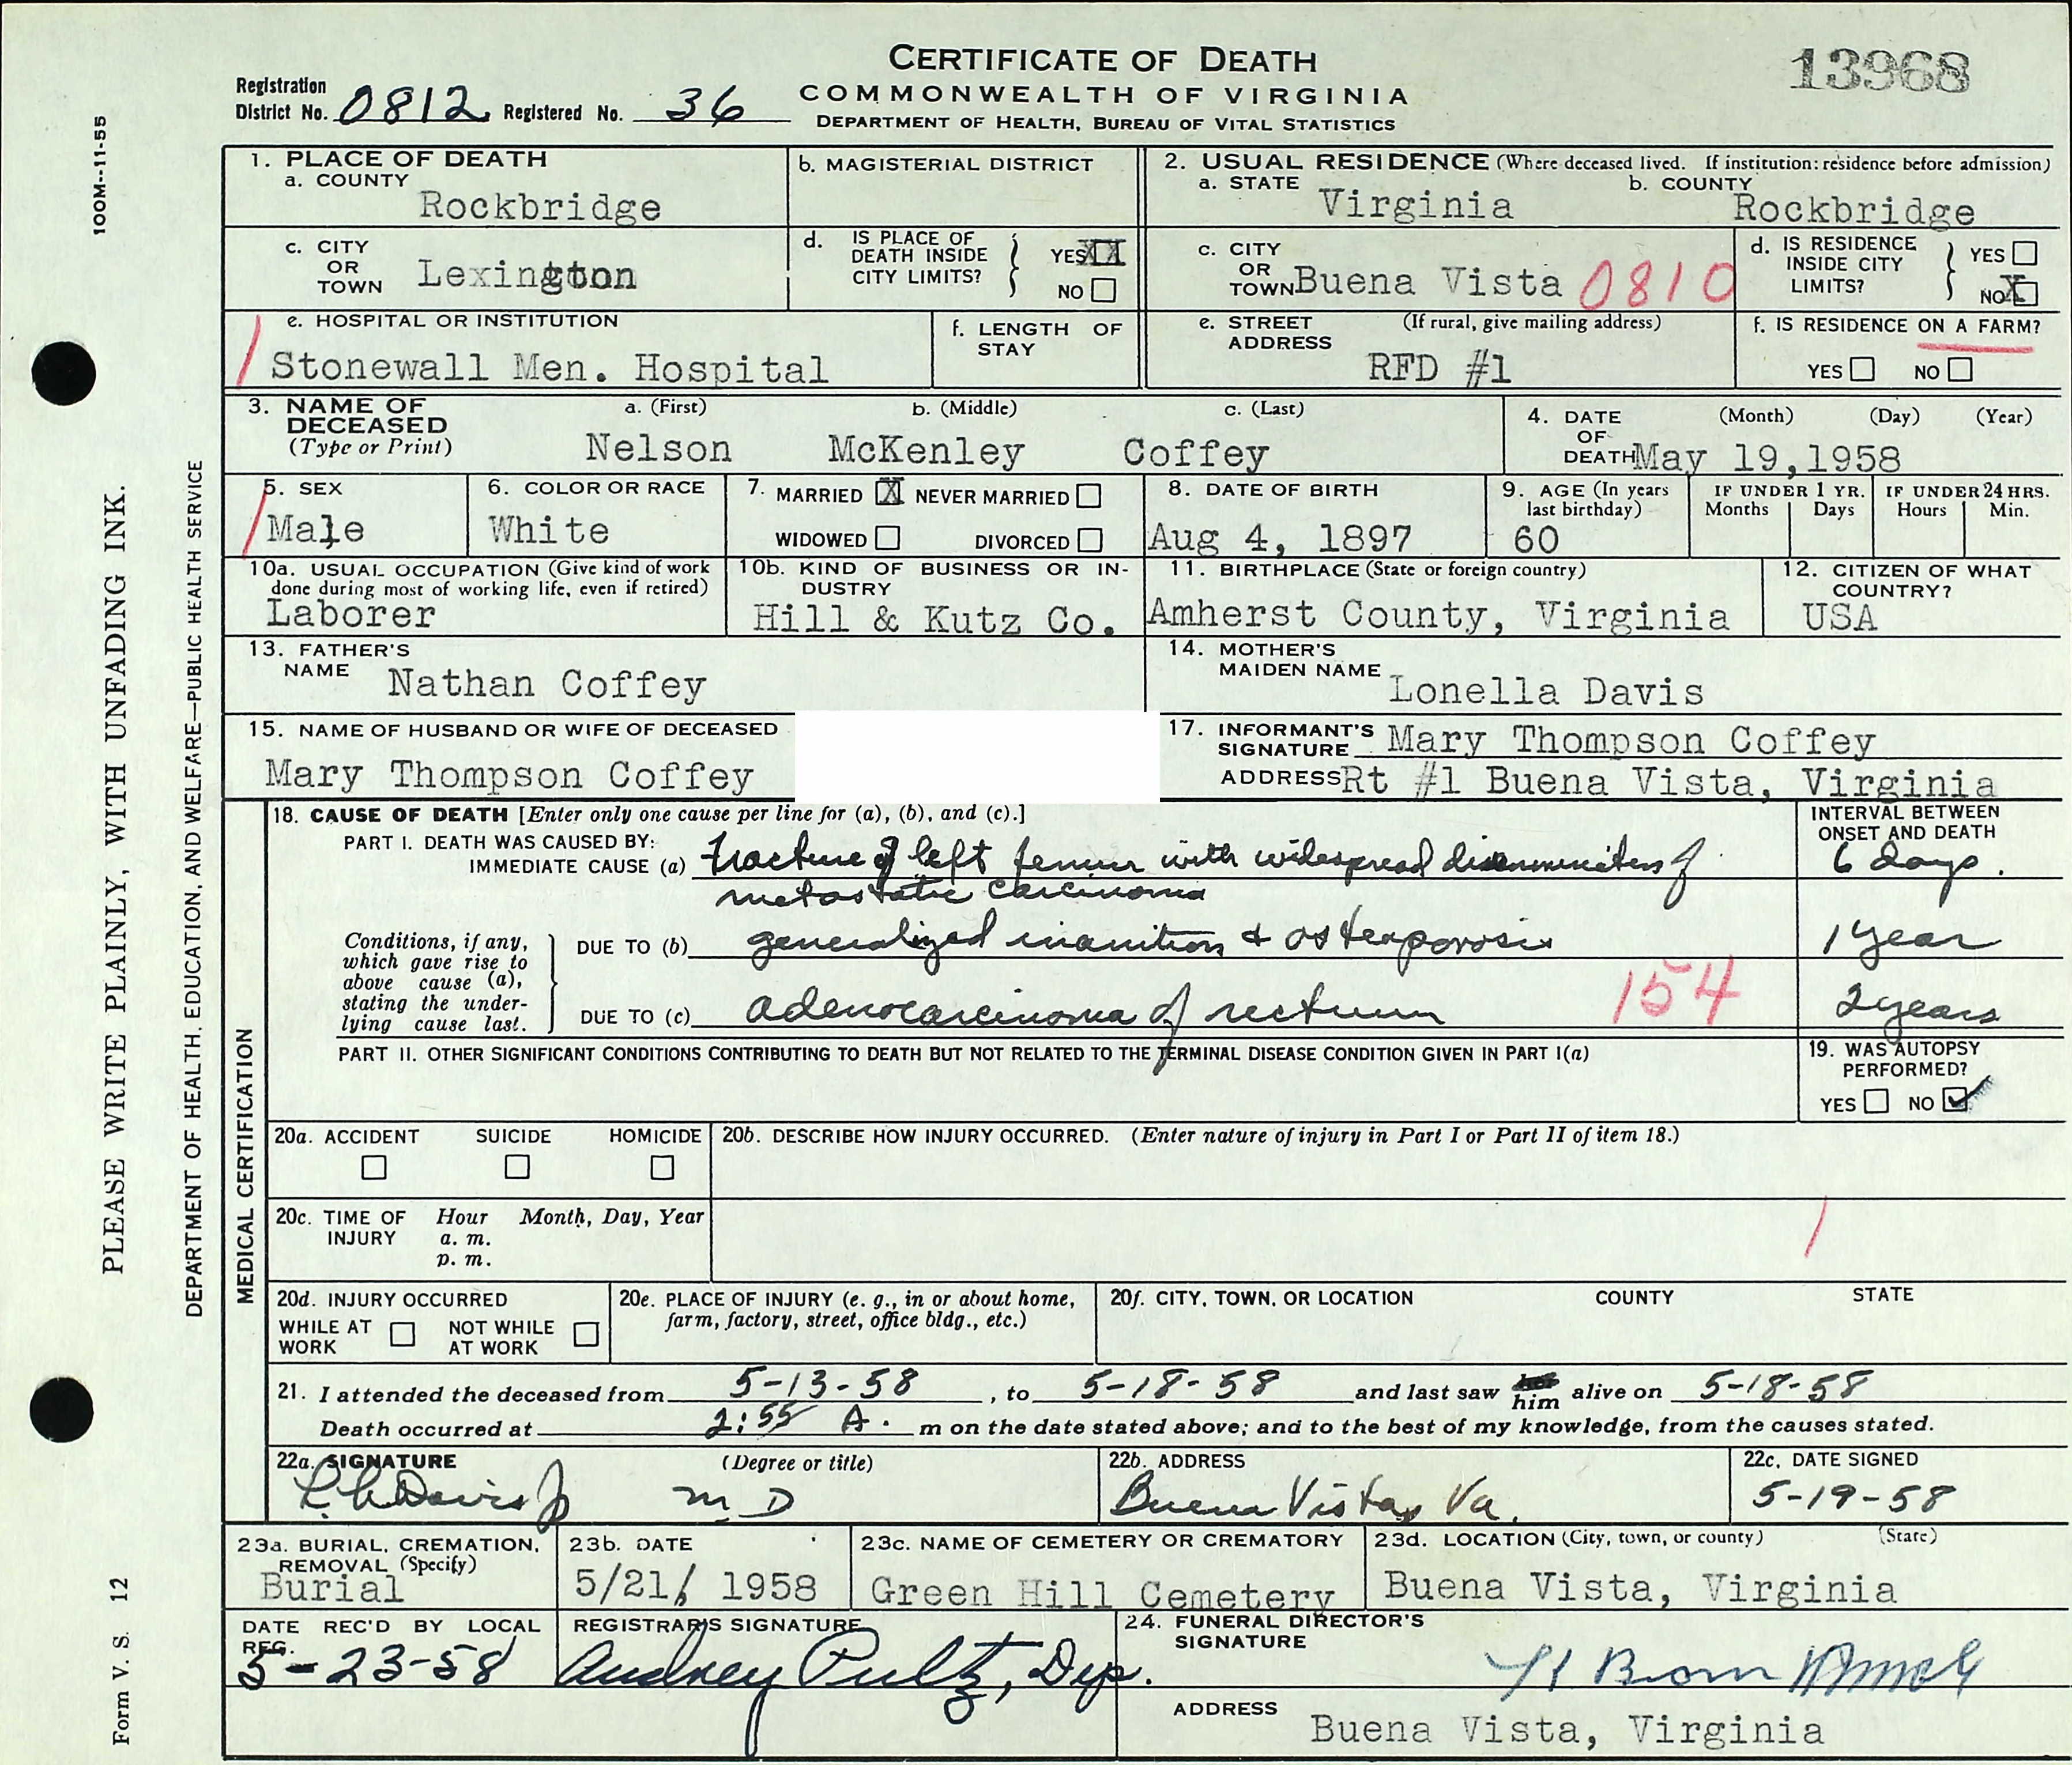 CERTIFICATE OF DEATH
COMMONWEALTH OF VIRGINIA
DEPARTMENT OF HEALTH, BUREAU OF VITAL STATISTICS
13968
Registration
District No. 0812 Registered No. 36
100M--11-55
PLEASE WRITE PLAINLY, WITH UNFADING INK.
DEPARTMENT OF HEALTH, EDUCATION, AND WELFARE—PUBLIC HEALTH SERVICE
Form V. S. 12
1. PLACE OF DEATH
a. COUNTY
Rockbridge
b. MAGISTERIAL DISTRICT
2. USUAL RESIDENCE (Where deceased lived. If institution: residence before admission)
a. STATE Virginia
b. COUNTY Rockbridge
c. CITY OR TOWN Lexington
d. IS PLACE OF DEATH INSIDE CITY LIMITS? YES XX NO
c. CITY OR TOWN Buena Vista 0810
d. IS RESIDENCE INSIDE CITY LIMITS? YES NO X
e. HOSPITAL OR INSTITUTION
Stonewall Men. Hospital
f. LENGTH OF STAY
e. STREET ADDRESS (If rural, give mailing address)
RFD #1
f. IS RESIDENCE ON A FARM?
YES NO
3. NAME OF DECEASED (Type or Print)
a. (First) b. (Middle) c. (Last)
Nelson McKenley Coffey
4. DATE OF DEATH (Month) (Day) (Year)
May 19,1958
5. SEX
Male
6. COLOR OR RACE
White
7. MARRIED X NEVER MARRIED
WIDOWED DIVORCED
8. DATE OF BIRTH
Aug 4, 1897
9. AGE (In years last birthday)
60
IF UNDER 1 YR.
Months Days
IF UNDER 24 HRS.
Hours Min.
10a. USUAL OCCUPATION (Give kind of work done during most of working life, even if retired)
Laborer
10b. KIND OF BUSINESS OR INDUSTRY
Hill & Kutz Co.
11. BIRTHPLACE (State or foreign country)
Amherst County, Virginia
12. CITIZEN OF WHAT COUNTRY?
USA
13. FATHER'S NAME
Nathan Coffey
14. MOTHER'S MAIDEN NAME
Lonella Davis
15. NAME OF HUSBAND OR WIFE OF DECEASED
Mary Thompson Coffey
17. INFORMANT'S SIGNATURE Mary Thompson Coffey
ADDRESS Rt #1 Buena Vista, Virginia
MEDICAL CERTIFICATION
18. CAUSE OF DEATH [Enter only one cause per line for (a), (b), and (c).]
INTERVAL BETWEEN ONSET AND DEATH
PART I. DEATH WAS CAUSED BY:
IMMEDIATE CAUSE (a) fracture of left femur with widespread dissemination of
metastatic carcinoma
6 days.
Conditions, if any, which gave rise to above cause (a), stating the underlying cause last.
DUE TO (b) generalized inanition & osteoporosis
1 year
DUE TO (c) adenocarcinoma of rectum 154
2 years
PART II. OTHER SIGNIFICANT CONDITIONS CONTRIBUTING TO DEATH BUT NOT RELATED TO THE TERMINAL DISEASE CONDITION GIVEN IN PART I(a)
19. WAS AUTOPSY PERFORMED?
YES NO ✓
20a. ACCIDENT SUICIDE HOMICIDE
20b. DESCRIBE HOW INJURY OCCURRED. (Enter nature of injury in Part I or Part II of item 18.)
20c. TIME OF INJURY Hour Month, Day, Year
a. m.
p. m.
20d. INJURY OCCURRED
WHILE AT WORK NOT WHILE AT WORK
20e. PLACE OF INJURY (e. g., in or about home, farm, factory, street, office bldg., etc.)
20f. CITY, TOWN, OR LOCATION COUNTY STATE
21. I attended the deceased from 5-13-58, to 5-18-58 and last saw him alive on 5-18-58
Death occurred at 2:55 A. m on the date stated above; and to the best of my knowledge, from the causes stated.
22a. SIGNATURE (Degree or title)
Davis Jr MD
22b. ADDRESS
Buena Vista, Va.
22c. DATE SIGNED
5-19-58
23a. BURIAL, CREMATION, REMOVAL (Specify)
Burial
23b. DATE
5/21/ 1958
23c. NAME OF CEMETERY OR CREMATORY
Green Hill Cemetery
23d. LOCATION (City, town, or county) (State)
Buena Vista, Virginia
DATE REC'D BY LOCAL REG.
5-23-58
REGISTRAR'S SIGNATURE
Audrey Pultz, Dep.
24. FUNERAL DIRECTOR'S SIGNATURE
ADDRESS
Buena Vista, Virginia